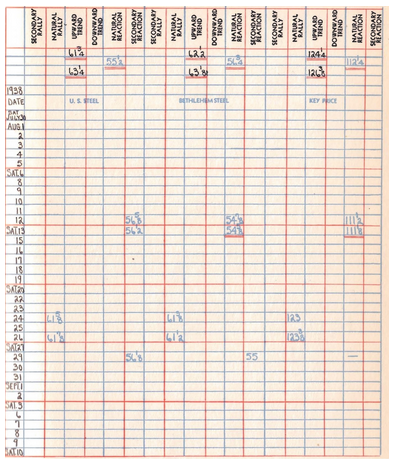 SECONDARY RALLY NATURAL RALLY UPWARD TREND DOWNWARD TREND NATURAL REACTION SECONDARY REACTION SECONDARY RALLY NATURAL RALLY UPWARD TREND DOWNWARD TREND NATURAL REACTION SECONDARY REACTION SECONDARY RALLY NATURAL RALLY UPWARD TREND DOWNWARD TREND NATURAL REACTION SECONDARY REACTION
61 3/4 62 1/2 124 1/4
55 1/2 56 3/4 112 1/4
63 1/4 63 1/8 126 3/8
1938
DATE U. S. STEEL BETHLEHEM STEEL KEY PRICE
SAT. JULY 30
AUG.1
2
3
4
5
SAT.6
8
9
10
11
12 56 5/8 54 7/8 111 1/2
SAT.13 56 1/2 54 5/8 111 1/8
15
16
17
18
19
SAT.20
22
23
24 61 5/8 61 3/8 123
25
26 61 7/8 61 1/2 123 3/8
SAT.27
29 56 1/8 55 —
30
31
SEPT.1
2
SAT.3
6
7
8
9
SAT.10